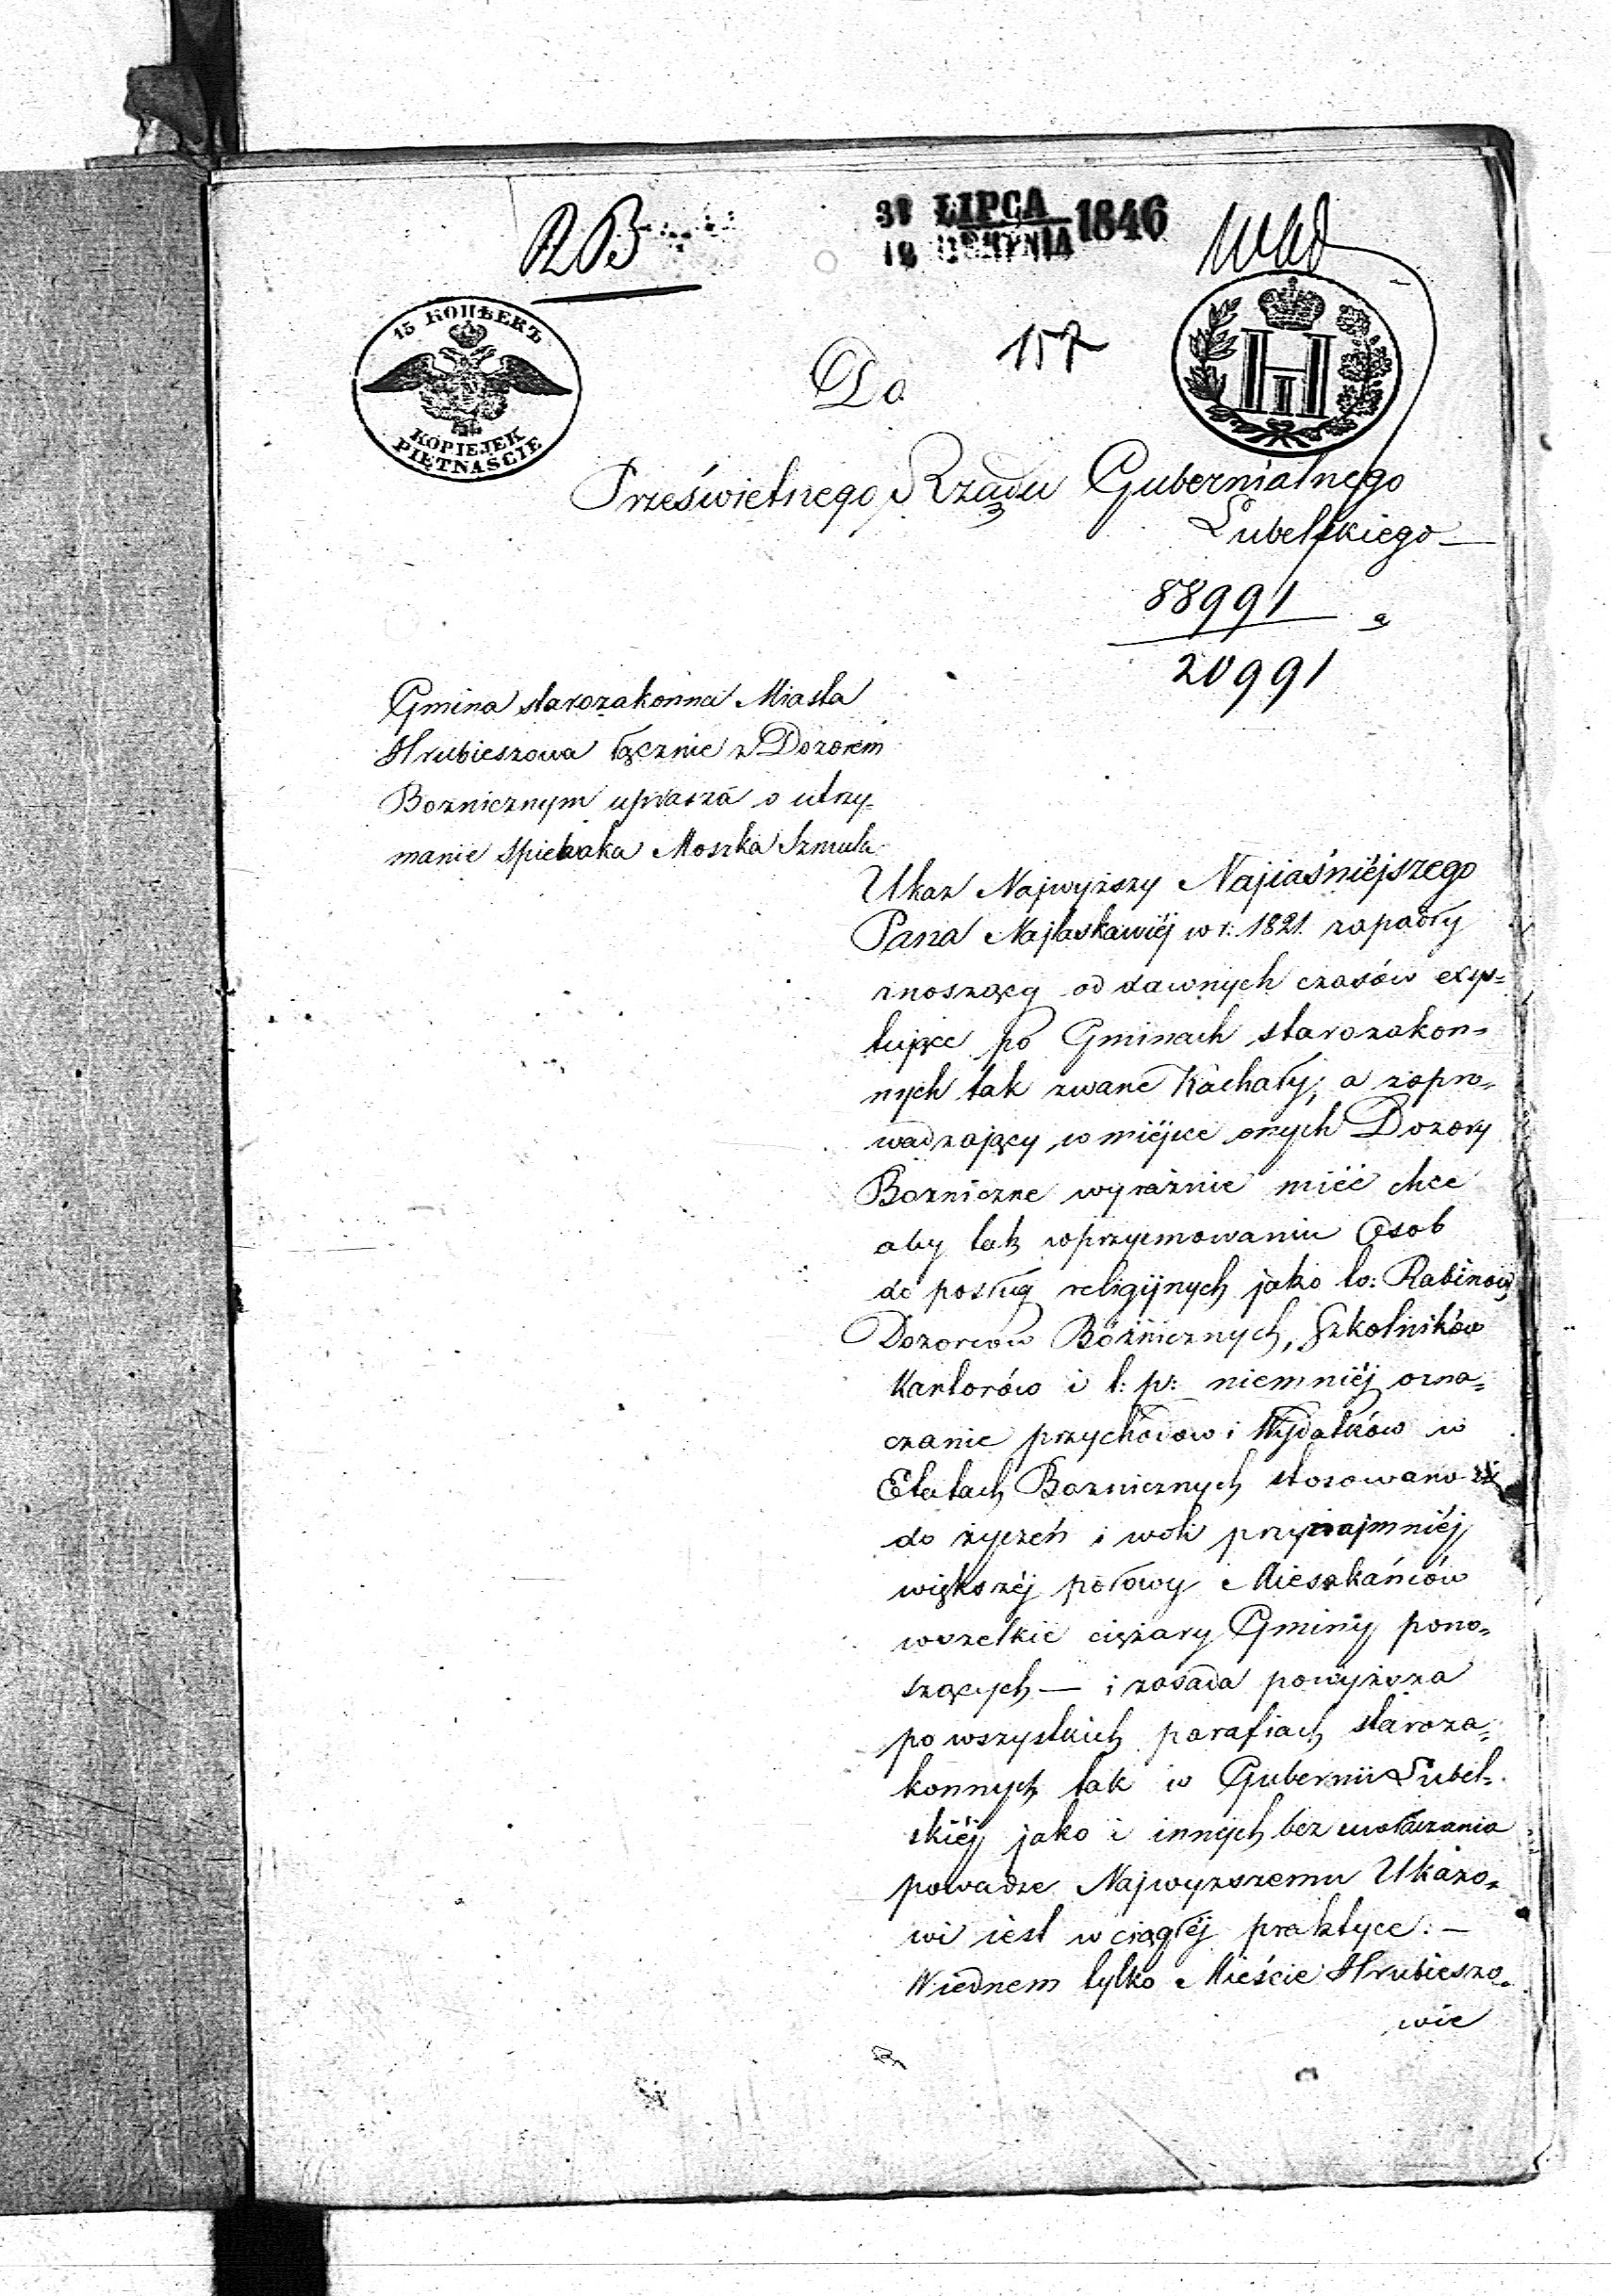 RB
LIPCA 1846
SIERPNIA
15 КОПѢЕКЪ
KOPIEJEK
PIĘTNAŚCIE
157
Do
Prześwietnego Rządu Gubernialnego
Lubelskiego
88991
20991
Gmina starozakonna Miasta
Hrubieszowa łącznie z Dozorem
Boznicznym uprasza o utrzy-
manie spiewaka Moszka Szmula
Ukaz Najwyższy Najiaśniéjszego
Pana Najłaskawiéj w r. 1821. zapadły
znoszący od dawnych czasów exys-
tujące po Gminach starozakon-
nych tak zwane Kachały; a zapro-
wadzający w miéjsce onych Dozory
Boznicze wyraźnie miéć chce
aby tak w przyjmowaniu Osob
do posług religijnych jako to: Rabinów
Dozorców Bóżnicznych, Szkolników
Kantorów i t: p: niemniéj ozna-
czanie przychodow i Wydatków w
Etatach Boznicznych stosowano się
do życzeń i woli przynajmniéj
większéj połowy Mieszkańców
wszelkie ciężary Gminy pono-
szących — i zasada powyższa
po wszystkich parafiach staroza-
konnych tak w Gubernii Lubel-
skiéj jako i innych bez uwłaczania
powadze Najwyższemu Ukazo-
wi iest w ciągłéj praktyce: —
W iednem tylko Mieście Hrubieszo-
wie